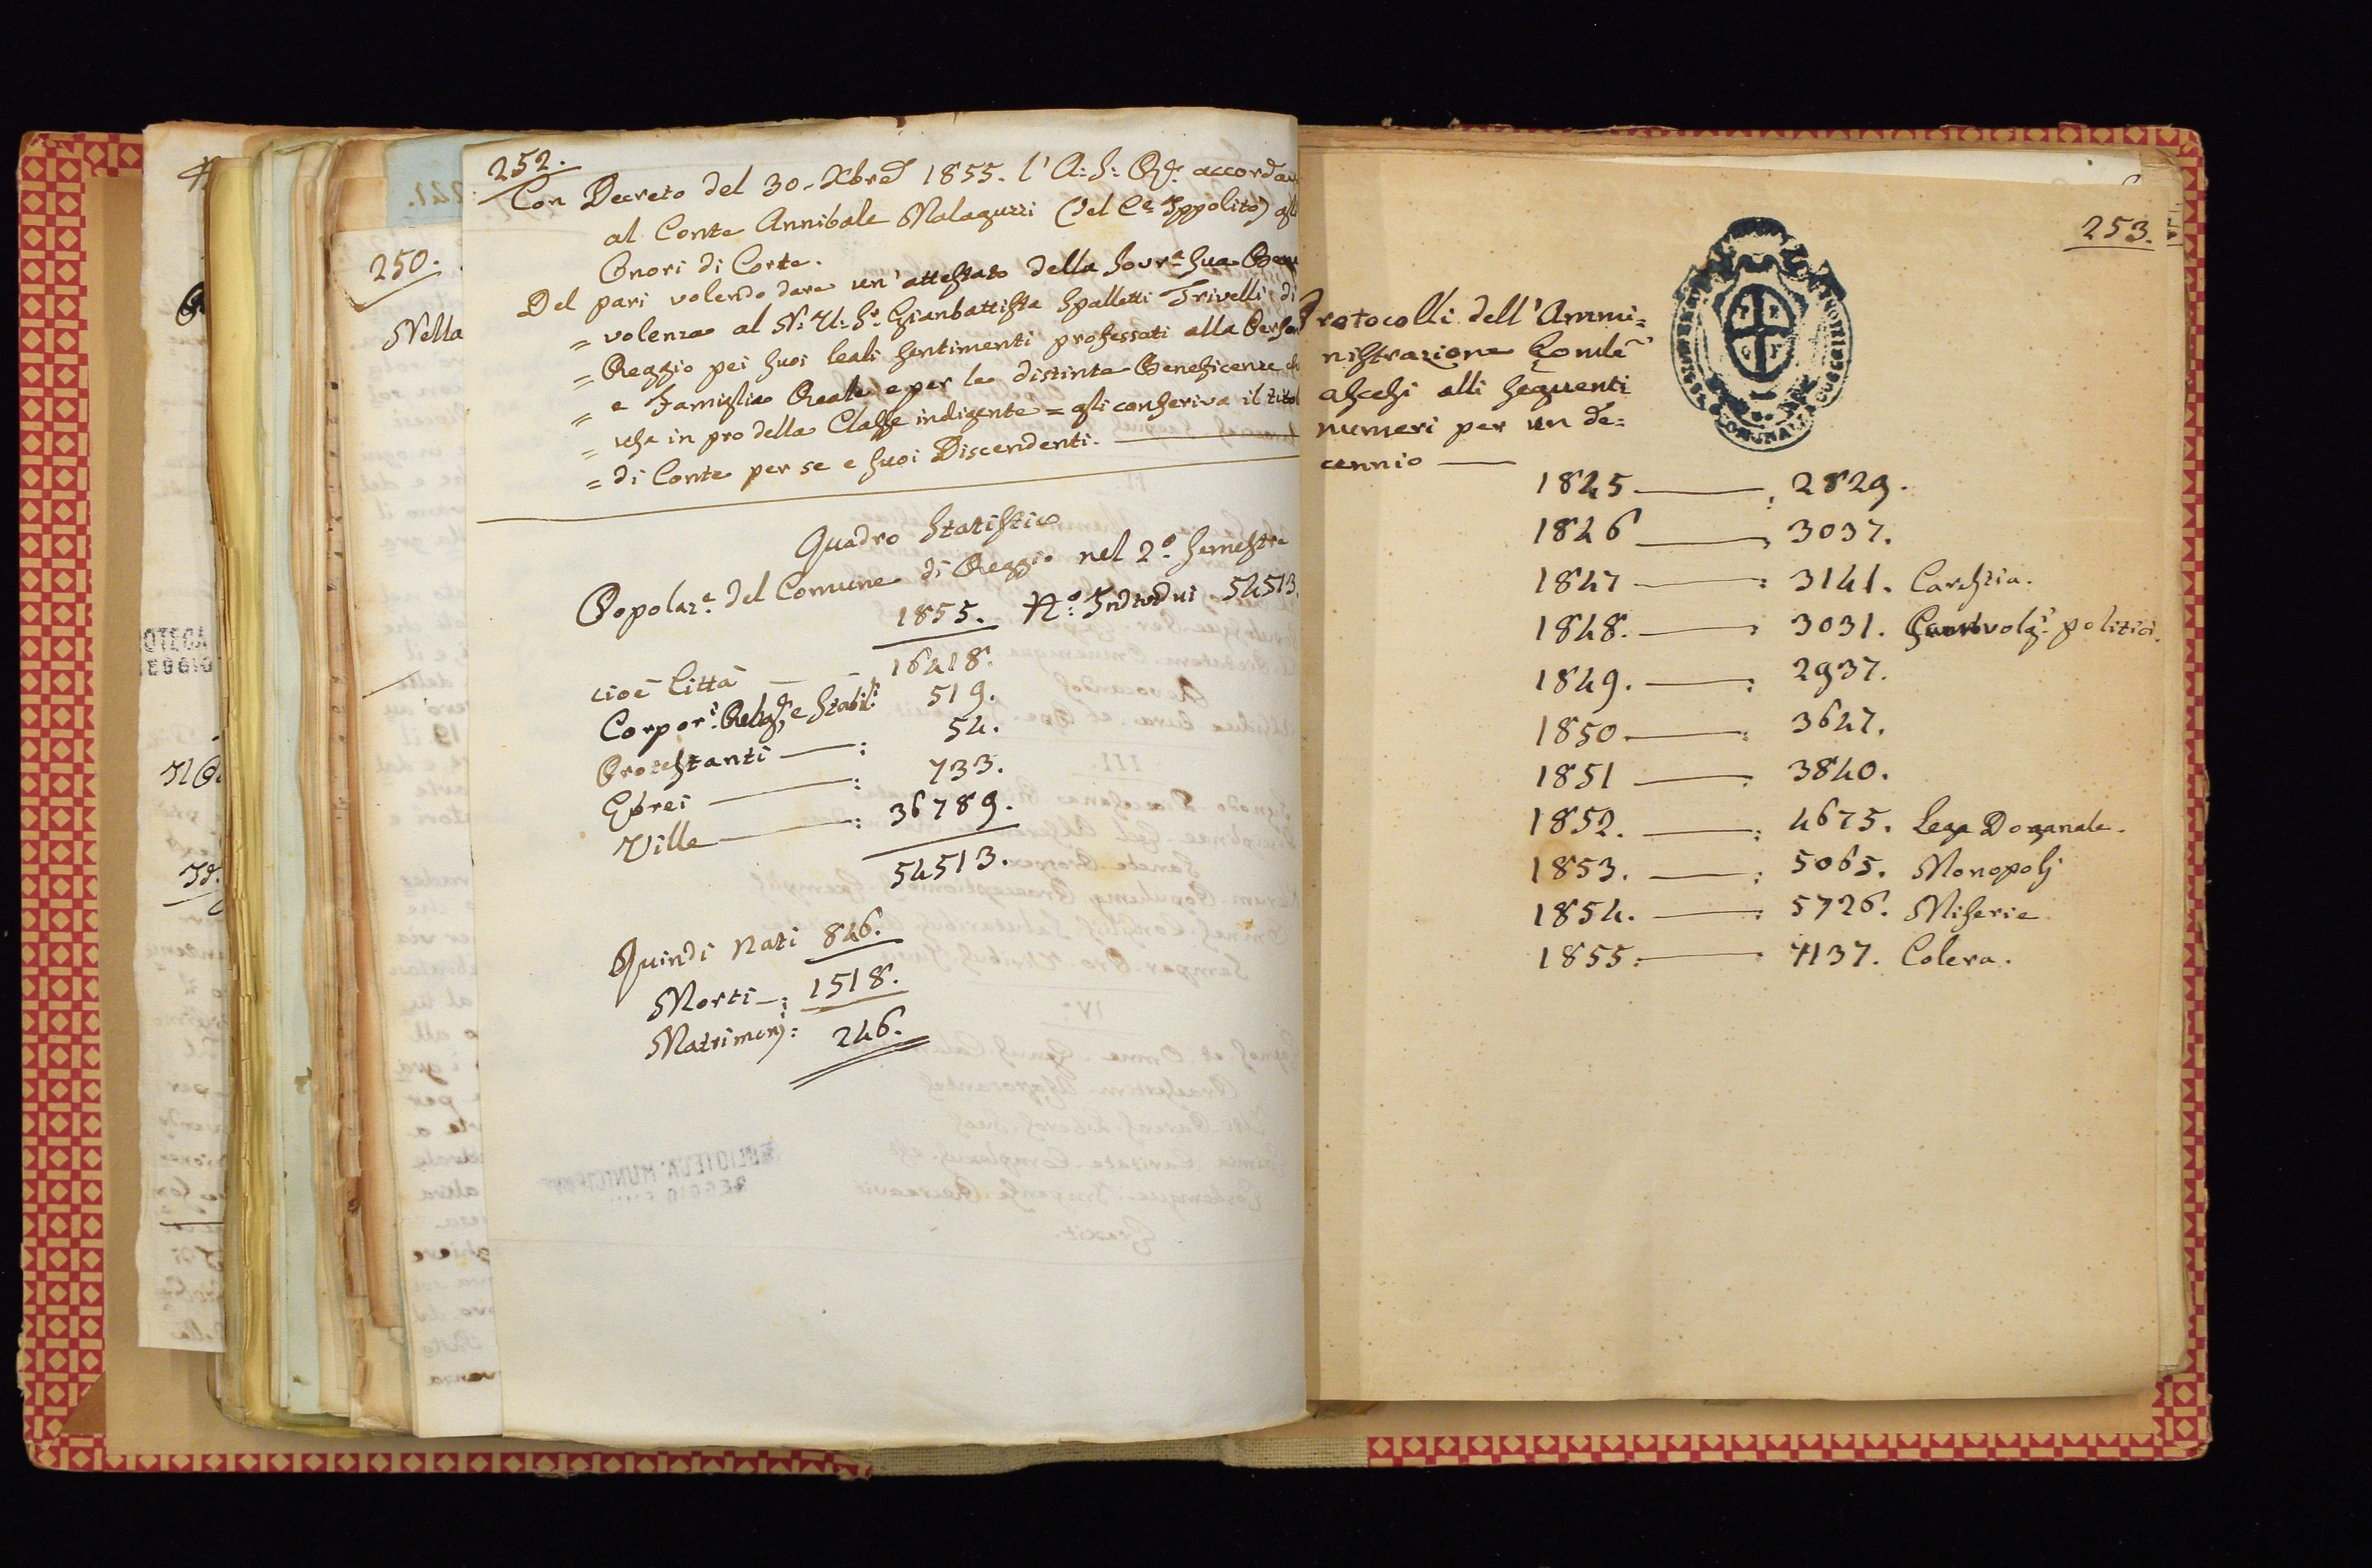 252.
Con Decreto del 30. Xbre 1855. l'A: S: R. accordava
al Conte Annibale Malaguzzi (del Ce. Ippolito) gli
Onori di Corte.
Del pari volendo dare un'attestato della Sovra. sua Bene
= volenza al N: U: Sr. Gianbattista Spalletti Trivelli di
= Reggio pei suoi leali sentimenti professati alla
= e Famiglia Reale e per le distinte Beneficenze che
= usa in pro della Classe indigente = gli conferiva il titolo
= di Conte per se e suoi Discendenti.
Quadro Statistico
Popolaze. del Comune di Reggio nel 2o. Semestre
1855. No: Individui 54513.
cioè Città — 16418.
Corpori. Relig. e Stabili. 519.
Protestanti —: 54.
Ebrei —: 733.
Ville —: 36789.
54513.
Quindi Nati 846.
Morti —: 1518.
Matrimonj: 246.
250.
Nella
241.
253.
Protocolli dell'Ammi=
nistrazione Comle
ascesi alli seguenti
numeri per un de=
cennio —
1845. —: 2829.
1846 —, 3037.
1847 —: 3141. Carestia.
1848. —, 3031. politici.
1849. —: 2937.
1850. —: 3647.
1851 —. 3840.
1852. —: 4675. Lega Doganale.
1853. —: 5065. Monopolj
1854. —: 5726. Miserie
1855: —. 7137. Colera.